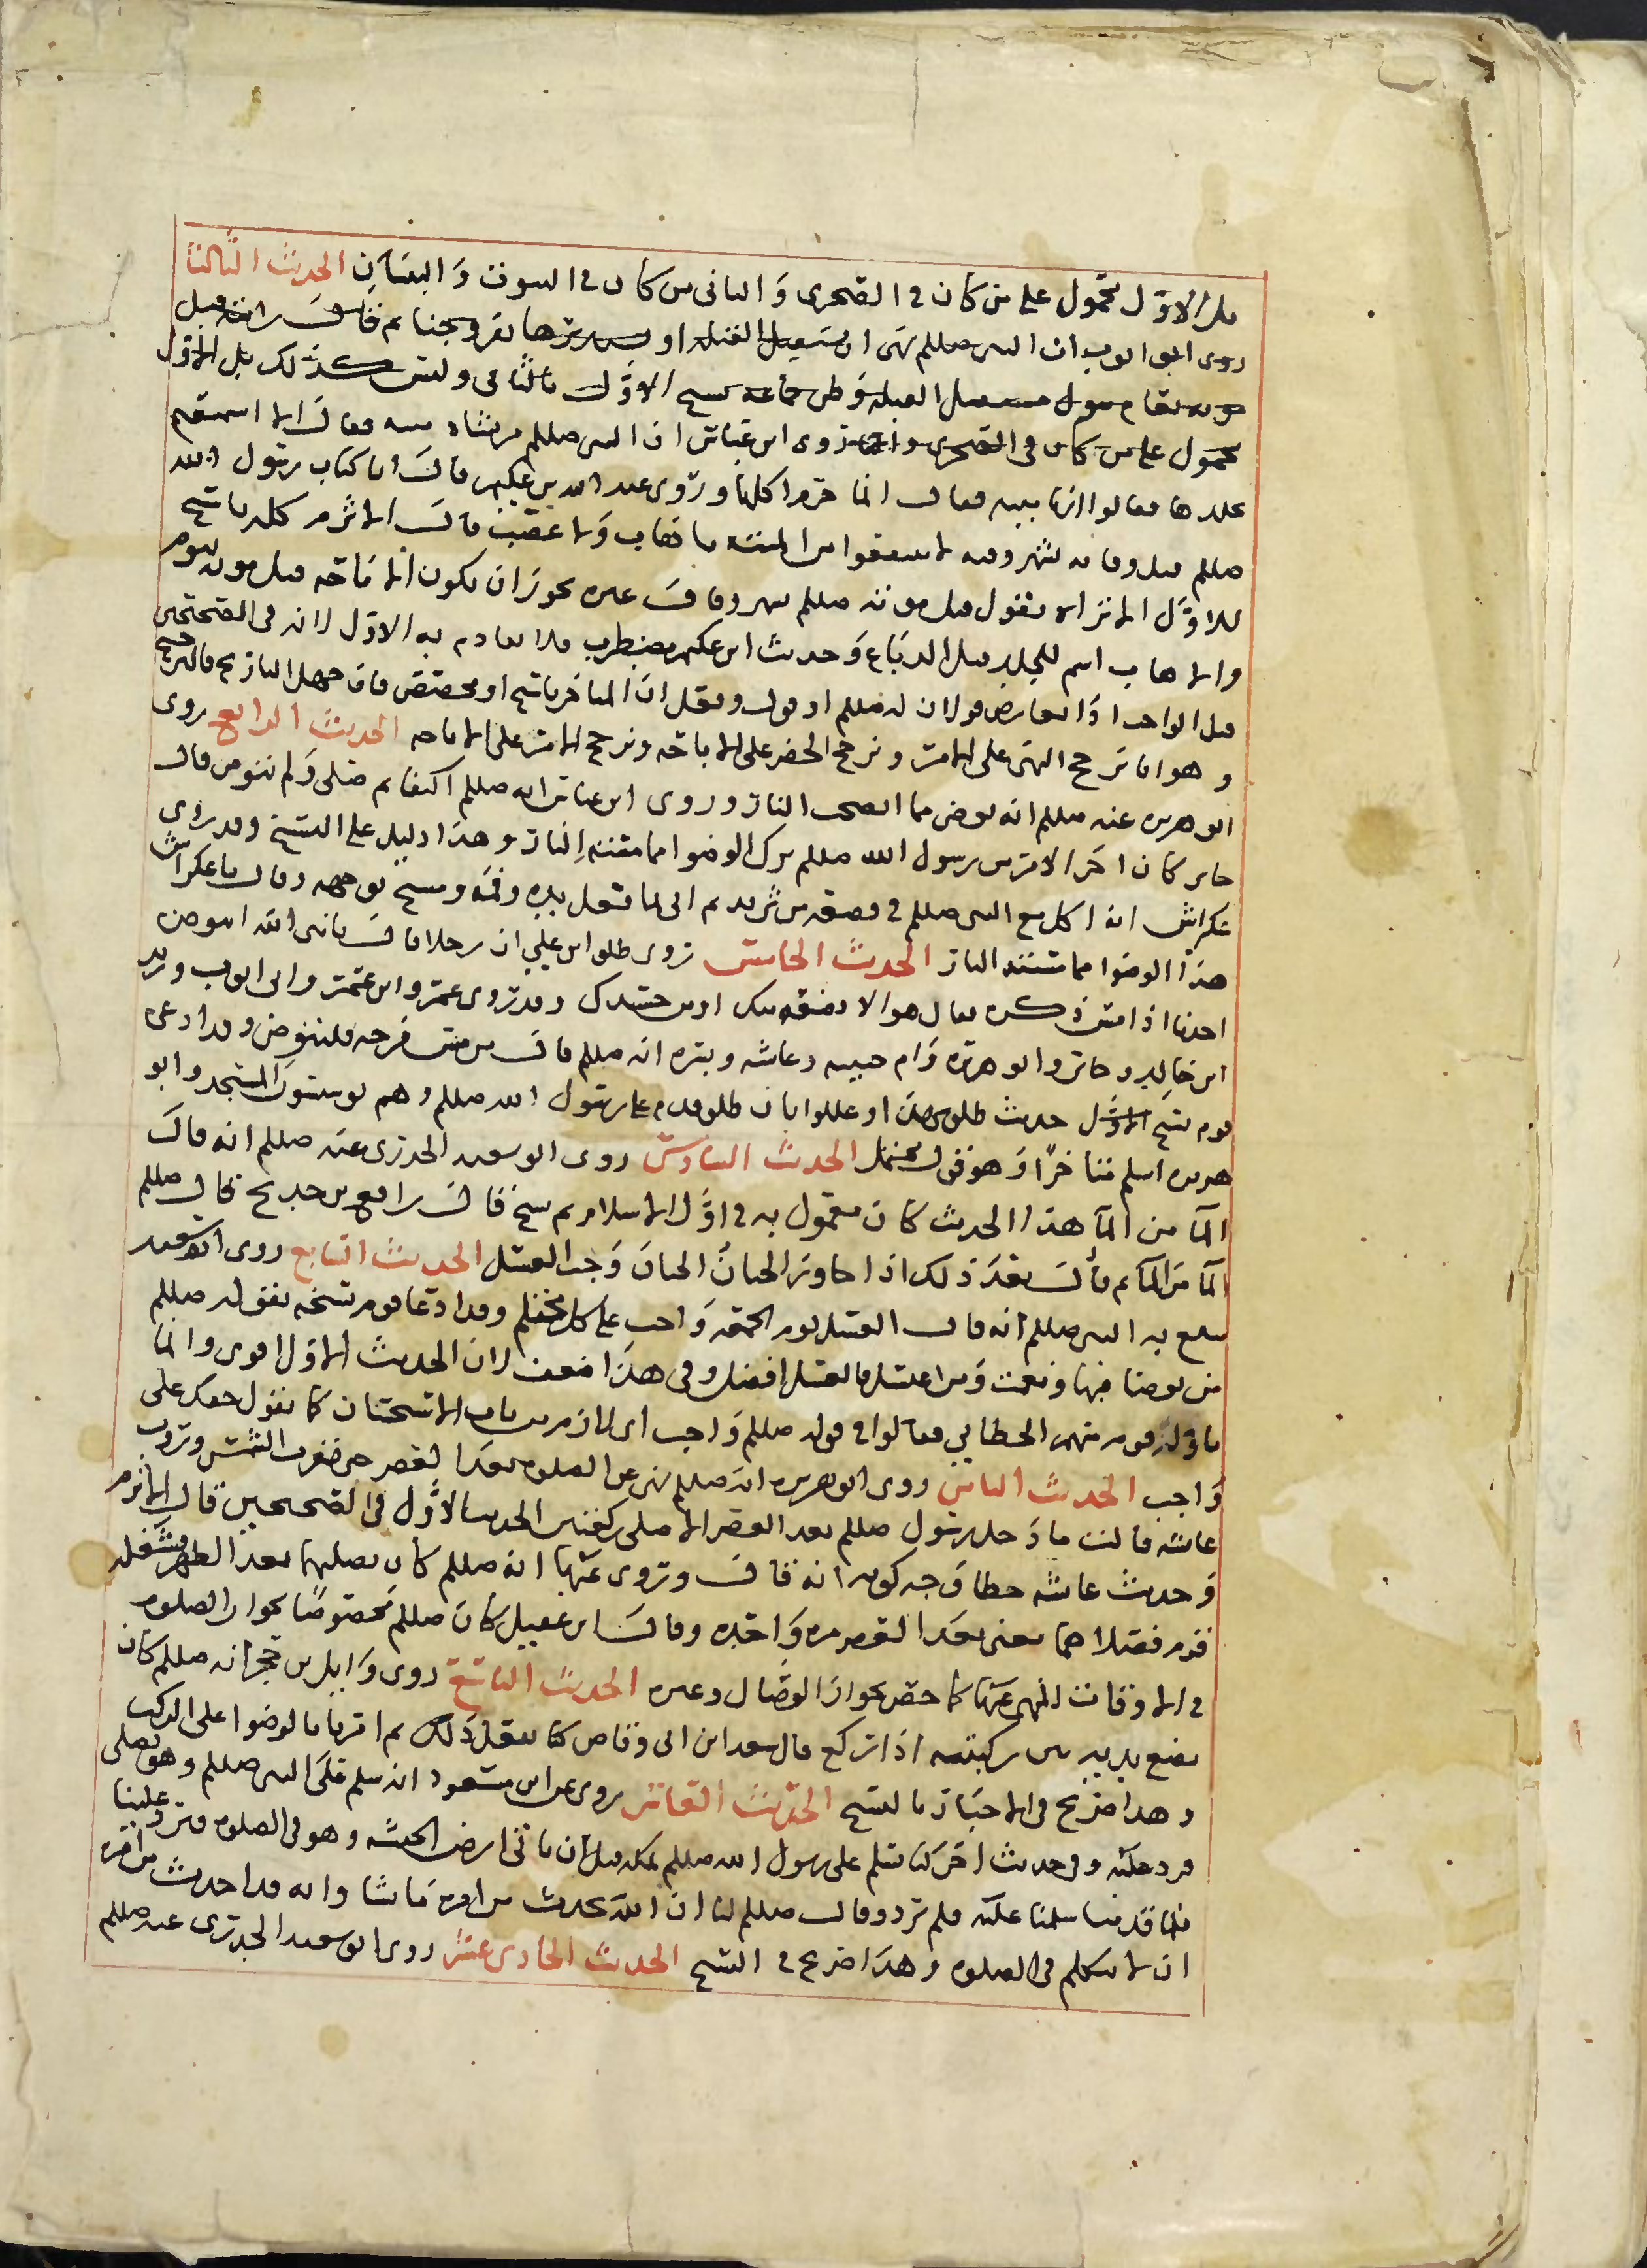 بل الاول محمول على من كان في الصحرى والثاني من كان في البيوت والبنيان الحديث الثالث
روى ابو ايوب ان النبي صللم نهى ان نستقبل القبلة او نستدبرها بفروجنا ثم قال رايته قبل
موته بعام يبول مستقبل القبلة وظن جماعة نسخ الاول بالثاني وليس كذلك بل الاول
محمول على من كان في الصحرى وايضا روى ابن عباس ان النبي صللم مر بشاة ميتة فقال الا استمتعتم
بجلدها فقالوا انها ميتة فقال انما حرم اكلها وروى عبد الله بن عكيم قال اتانا كتاب رسول الله
صللم قبل وفاته بشهر وفيه لا تنتفعوا من الميتة باهاب ولا عصب قال الاثرم كله ناسخ
للاول الا تراه يقول قبل موته صللم بشهر وقال غيره يجوز ان يكون الاباحة قبل موته بيوم
والاهاب اسم للجلد قبل الدباغ وحديث ابن عكيم مضطرب فلا يقاوم به الاول لانه في الصحيحين
قيل الواحد اذا تعارض قولان له صللم او قول وفعل ان المتأخر ناسخ او مخصص فان جهل التاريخ فالترجيح
وهو انا نرجح النهي على الامر ونرجح الحضر على الاباحة ونرجح الامر على الاباحه الحديث الرابع روى
ابو هريره عنه صللم انه توضى مما انضجت النار وروى ابن عباس انه صللم اكل كتفا ثم صلى ولم يتوض قال
جابر كان اخر الامر من رسول الله صللم ترك الوضوا مما مسته النار وهذا دليل على النسخ وقد روى
عكراش انه اكل مع النبي صللم في قصعة من ثريد ثم اتى بما فغسل يده وفمه ومسح بوجهه وقال يا عكراش
هذا الوضوا مما مسته النار الحديث الخامس روى طلق ابن علي ان رجلا قال يا نبي الله ايتوضى
احدنا اذا مس ذكره فقال هو الا بضعة منك او من جسدك وقد روى عمر وابن عمر وابي ايوب وزيد
ابن خالد وجابر وابو هريرة وام حبيبه وعائشه وبسره انه صللم قال من مس فرجه فليتوض وقد ادعى
قوم نسخ الاول حديث طلق وعللوا بان طلق قدم على رسول الله صللم وهم يوسسون المسجد وابو
هريره اسلم متاخرا وهو في محتمل الحديث السادس روى ابو سعيد الخدري عنه صللم انه قال
المآ من المآ هذا الحديث كان معمول به في اول الاسلام ثم نسخ قال رافع بن خديج قال صللم
المآ من المآ ثم قال بعد ذلك اذا جاوز الختان الختان وجب الغسل الحديث السابع روى ابو سعيد
يبلغ به النبي صللم انه قال الغسل يوم الجمعة واجب على كل محتلم وقد ادعا قوم نسخه بقوله صللم
من توضا فبها ونعمت ومن اغتسل فالغسل افضل وفي هذا ضعف لان الحديث الاول اقوى وانما
تاوله قوم منهم الخطابي فقالوا في قوله صللم واجب اي لازم من باب الاستحسان كما يقول حقك علي
واجب الحديث الثامن روى ابو هريره انه صللم نهى عن الصلوه بعد العصر حتى تغرب الشمس وروت
عائشه قالت ما دخل رسول صللم بعد العصر الا صلى ركعتين الحديث الاول في الصحيحين قال الاثرم
وحديث عائشه خطا وجه كونه انه قال وتروى عنها انه صللم كان يصليها بعد الظهر فشغله
قوم فصلاهما يعني بعد العصر مرة واحدة وقال ابن عقيل كان صللم مخصوصا بجواز الصلوه
في الاوقات المنهي عنها كما خص بجواز الوصال وغيره الحديث التاسع روى وايل بن حجر انه صللم كان
يضع يديه على ركبتيه اذا ركع قال سعد ابن ابي وقاص كنا نفعل ذلك ثم امرنا بالوضوا على الركب
وهذا صريح في الاخبار بالنسخ الحديث العاشر روى عن ابن مسعود انه سلم على النبي صللم وهو يصلي
فرد عليه وفي حديث اخر كنا نسلم على رسول الله صللم بمكه قبل ان ناتي ارض الحبشه وهو في الصلوه فيرد علينا
فلما قدمنا سلمنا عليه فلم يرد وقال صللم لنا ان الله يحدث من امره ما شا وانه قد احدث من امره
ان لا نتكلم في الصلوه وهذا صريح في النسخ الحديث الحادي عشر روى ابو سعيد الخدري عنه صللم